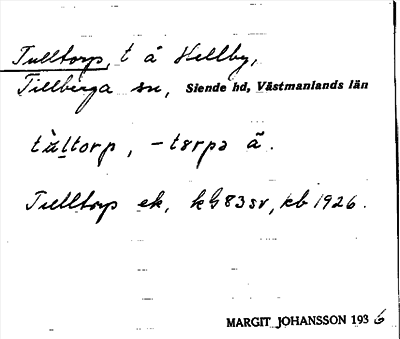 Tulltorp, t å Hellby,
Tillberga sn, Siende hd, Västmanlands län
tùltorp, -tɤrpə ã.
Tulltorp ek, kG83sv, kb 1926.
MARGIT JOHANSSON 1936